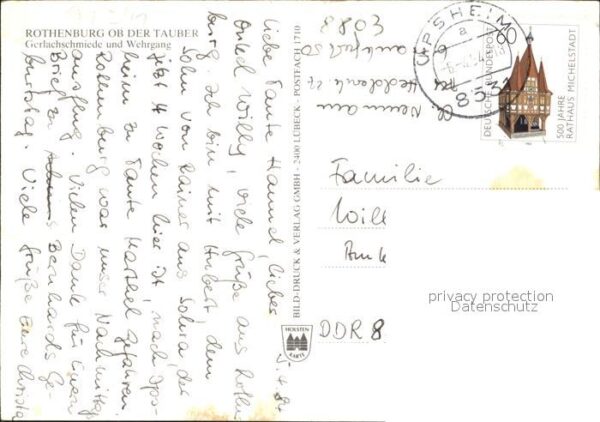 ROTHENBURG OB DER TAUBER
Gerlachschmiede und Wehrgang
Liebe Tante Hannel, lieber
Onkel Willy, viele Grüße aus Rothen-
burg. Ich bin mit Hubert, dem
Sohn von Rainer aus Sohra, der
jetzt 4 Wochen hier ist, nach Ips-
heim zu Tante gefahren.
Rothenburg war unser Nachmittags-
ausflug. Vielen Dank für Euren
Brief zu Bernhards Ge-
burtstag. Viele Grüße Eure Christa
BILD-DRUCK & VERLAG GMBH · 2400 LÜBECK · POSTFACH 1710
HOLSTEN
KARTE
IPSHEIM
a
8531
60
DEUTSCHE BUNDESPOST
500 JAHRE
RATHAUS MICHELSTADT
Familie
Will
DDR 8
privacy protection
Datenschutz